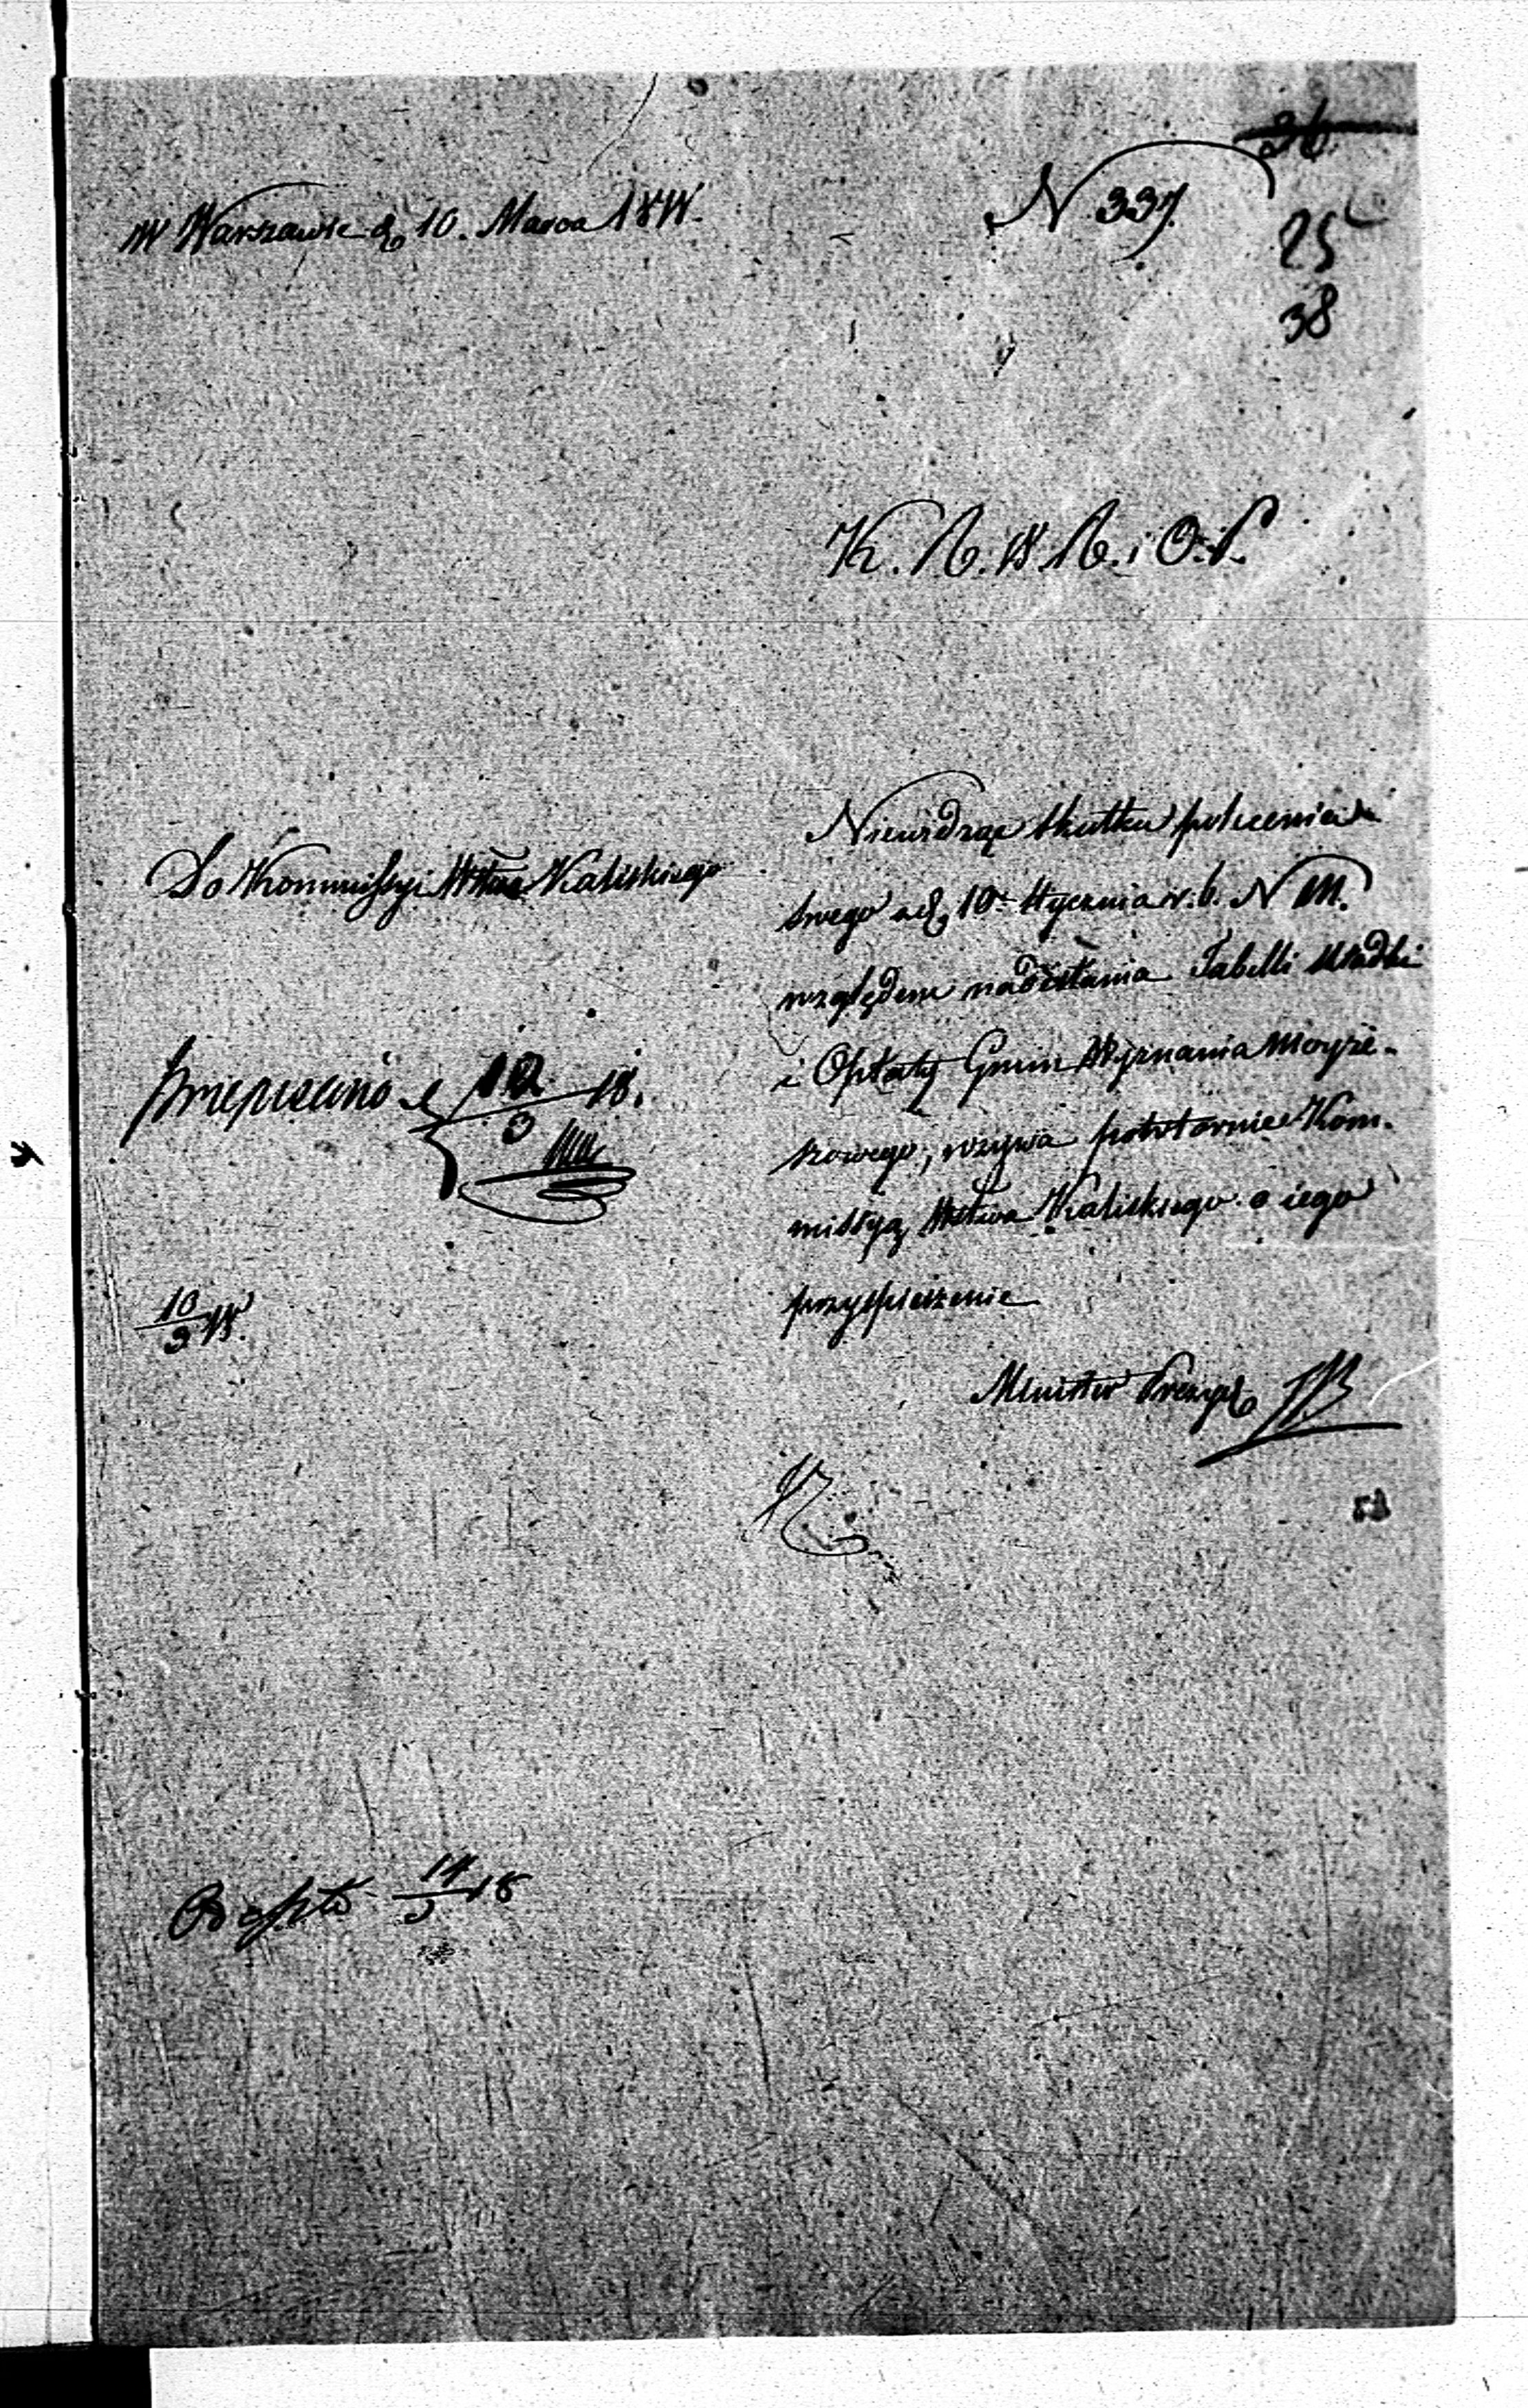 W Warszawie d. 10. Marca 1818.
N. 337.
26.
25
38
K. R. W. R. i O. P.
Do Kommissyi Wstwa Kaliskiego
Niewidząc skutku polecenia
swego z d. 10 Stycznia r. b. N
względem nadesłania Tabelli składki
i Opłaty Gmin Wyznania Moyże-
szowego, wzywa powtórnie Kom-
missyą Wstwa Kaliskiego o iego
przyspieszenie
Minister Prezyd.
przepisano d. 12/3 18.
10/3 18.
11/3 18